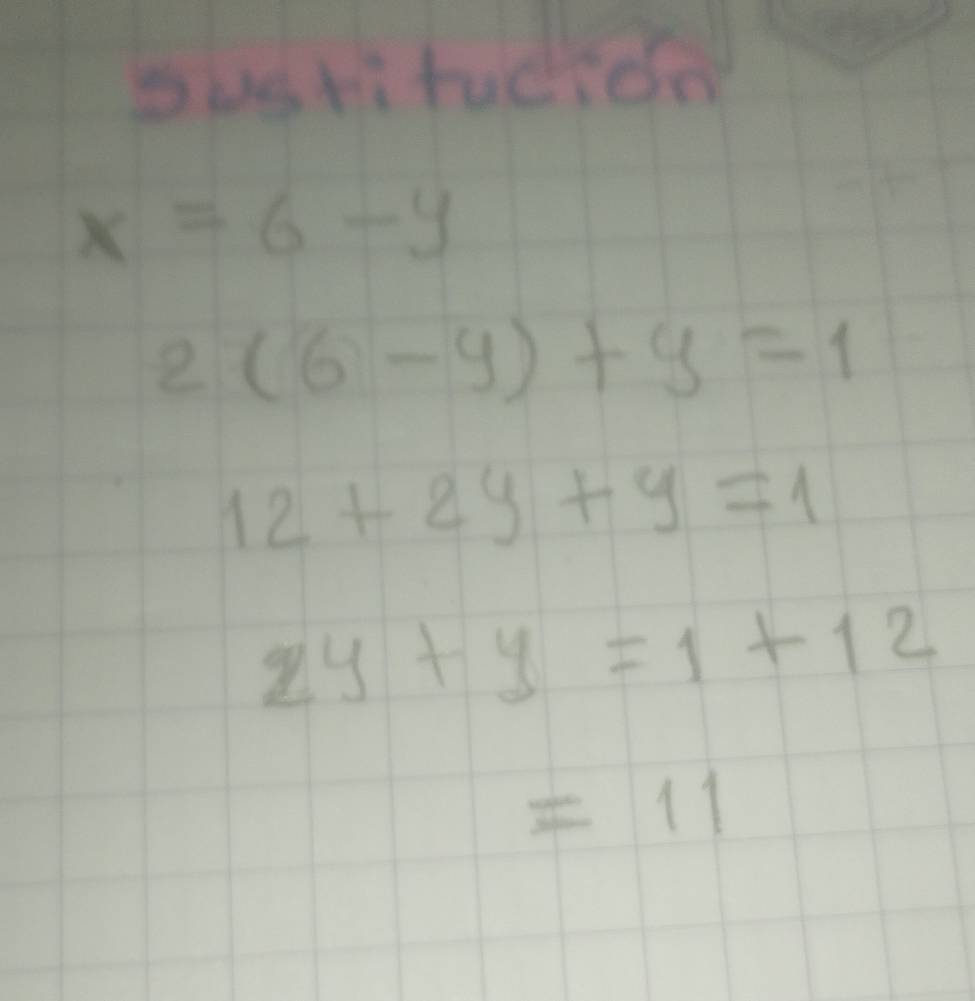 sustitución
x = 6 - y
2 (6 - y) + y = 1
12 + 2y + y = 1
2y + y = 1 + 12
= 11